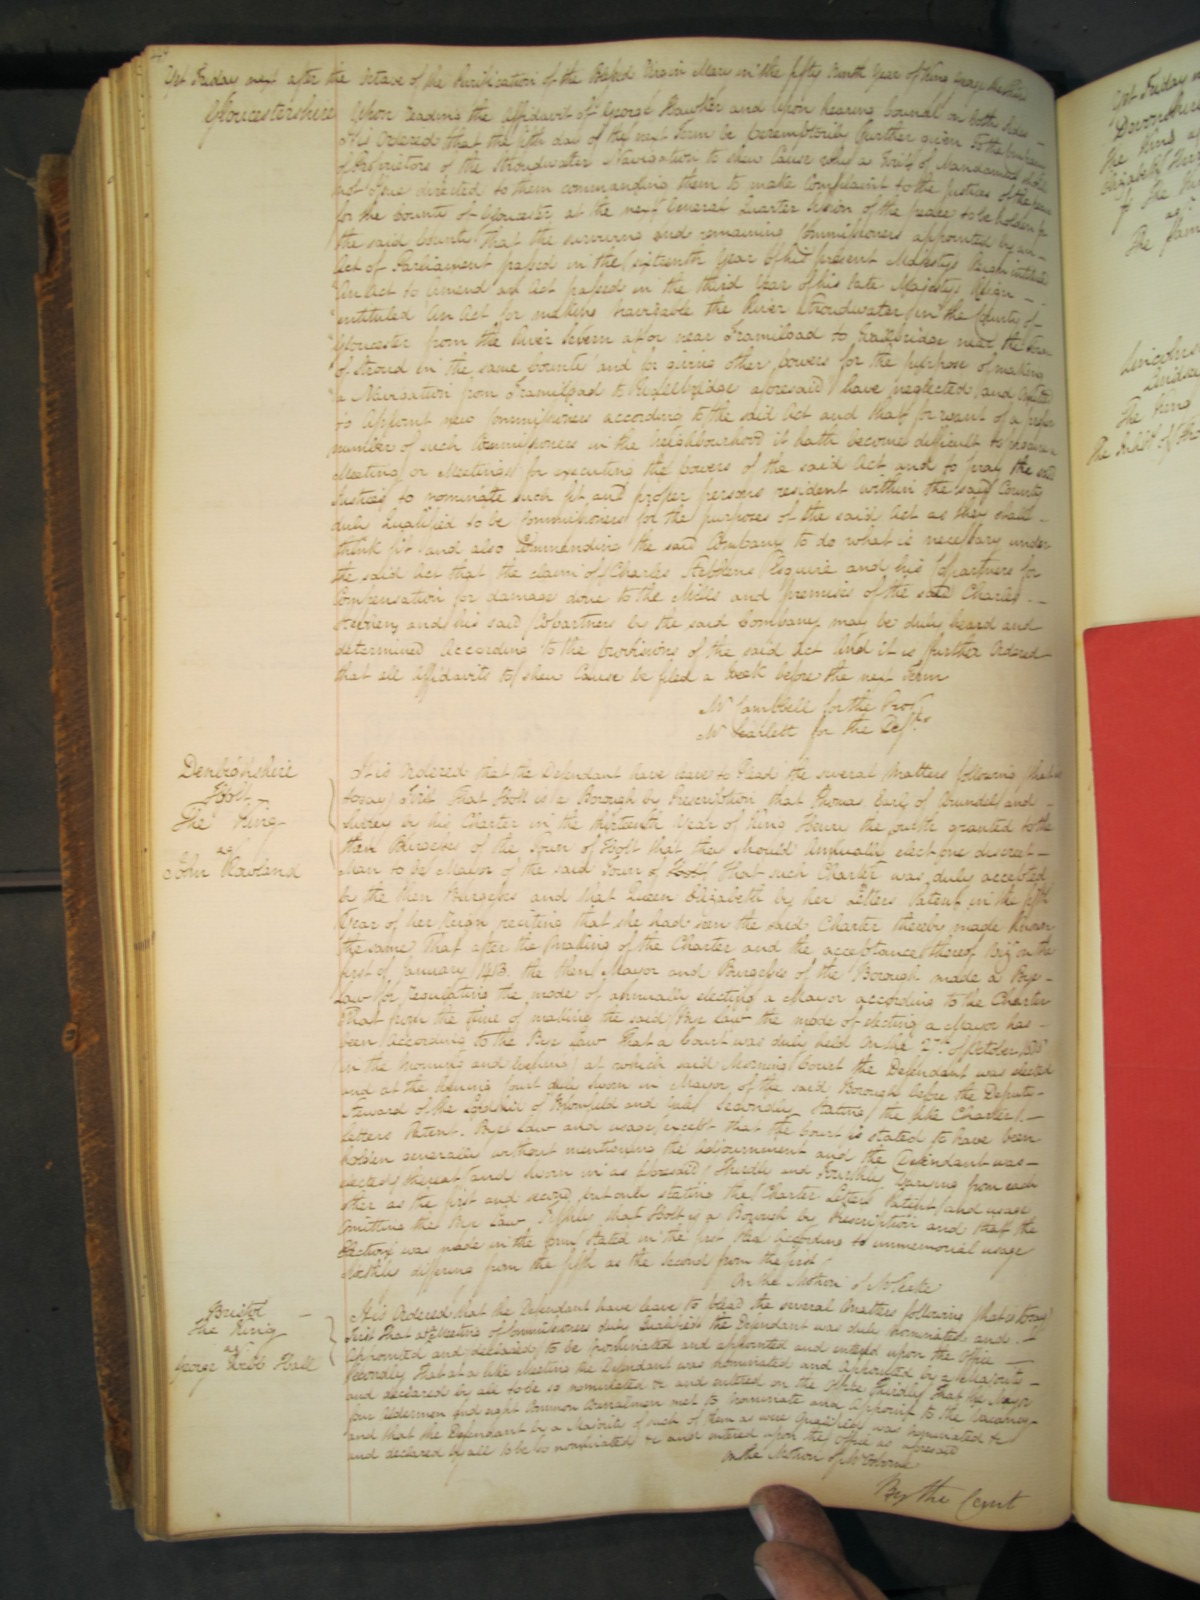 Yet Friday next after the Octave of the Purification of the Blessed Virgin Mary in the fifty Ninth Year of King George the Third
Gloucestershire Upon reading the Affidavit of George Hawker and upon hearing Counsel on both sides
It is Ordered that the fifth day of the next Term be peremptorily further given to the Company
of Proprietors of the Stroudwater Navigation to shew Cause why a Writ of Mandamus should
not issue directed to them commanding them to make Complaint to the Justices of the peace
for the County of Gloucester at the next General Quarter Session of the peace to be holden for
the said County that the surviving and remaining Commissioners appointed by an
Act of Parliament passed in the sixteenth Year of his present Majestys Reign intituled
An Act to amend an Act passed in the third Year of his late Majestys Reign
intituled An Act for making navigable the River Stroudwater in the County of
Gloucester from the River Severn at or near Framiload to Wallbridge near the Town
of Stroud in the same County and for giving other powers for the purpose of making
a Navigation from Framiload to Wallbridge aforesaid have neglected and omitted
to appoint new Commissioners according to the said Act and that for want of a proper
number of such Commissioners in the neighbourhood it hath become difficult to procure a
Meeting or Meetings for executing the powers of the said Act and to pray the said
Justices to nominate such fit and proper persons resident within the said County
duly qualified to be Commissioners for the purposes of the said Act as they shall
think fit and also Commanding the said Company to do what is necessary under
the said Act that the claim of Charles Stephens Esquire and his Copartners for
Compensation for damage done to the Mills and premises of the said Charles
Stephens and his said Copartners by the said Company may be duly heard and
determined According to the provisions of the said Act And it is further Ordered
that all Affidavits to shew Cause be filed a Week before the next Term
Mr Campbell for the Pros.r
Mr Scarlett for the Def.ts
Denbighshire
Holt
The King
ag.t
John Rowland
It is Ordered that the Defendant have leave to Plead the several Matters following that is
to say First That Holt is a Borough by Prescription that Thomas Earl of Arundel and
Surrey by his Charter in the thirteenth Year of King Henry the fourth granted to the
then Burgesses of the Town of Holt that they should Annually elect one discreet
Man to be Mayor of the said Town of Holt That such Charter was duly accepted
by the then Burgesses and that Queen Elizabeth by her Letters Patent in the fifth
Year of her Reign reciting that she had seen the said Charter thereby made known
the same That after the making of the Charter and the acceptance thereof viz.t on the
first of January 1413 the then Mayor and Burgesses of the Borough made a Bye
Law for regulating the mode of annually electing a Mayor according to the Charter
That from the time of making the said Bye Law the mode of electing a Mayor has
been According to the Bye Law That a Court was duly held on the 2nd of October
in the Morning and Evening at which said Morning Court the Defendant was elected
and at the Evening Court duly sworn in Mayor of the said Borough before the Deputy
Steward of the Lordship of Bromfield and Yale Secondly Stating the like Charter
Letters Patent Bye Law and usage except that the Court is stated to have been
holden generally without mentioning the Adjournment and the Defendant was
elected thereat and sworn in as aforesaid Thirdly and Fourthly Varying from each
other as the first and second but only stating the Charter Letters Patent and usage
omitting the Bye Law Fifthly that Holt is a Borough by Prescription and that the
Election was made in the form stated in the first Plea According to immemorial usage
Sixthly differing from the fifth as the second from the first
On the Motion of Mr
Bristol
The King
ag.t
George Webb Hall
It is Ordered that the Defendant have leave to plead the several Matters following that is to say
First That at a Meeting of Commissioners duly qualified the Defendant was duly nominated and
Appointed and declared to be nominated and appointed and entered upon the Office
Secondly That at a like Meeting the Defendant was nominated and Appointed by a Majority
and declared by all to be so nominated &c and entered on the Office Thirdly That the Mayor
four Aldermen and eight Common Councilmen met to nominate and Appoint to the Vacancy
and that the Defendant by a Majority of such of them as were qualified was nominated &c
and declared by all to be so nominated &c and entered upon the Office as aforesaid
On the Motion of Mr Osborne
By the Court
Yet Friday
Devonshire
The King
Elizabeth
The
Lincolns
Lindsey
The King
The Inhabts of